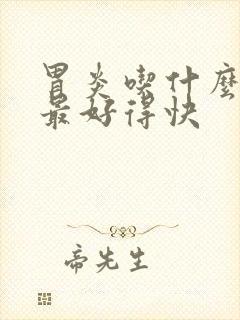 胃炎喫什麼
最好得快
帝先生